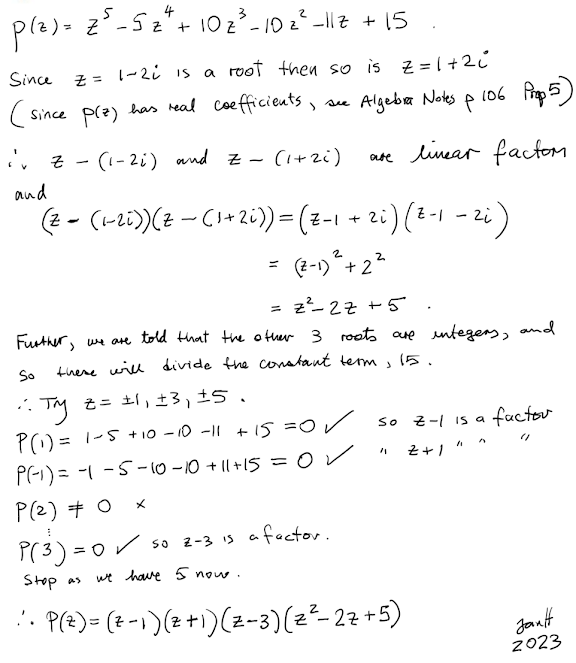 p(z) = z⁵ - 5z⁴ + 10z³ - 10z² - 11z + 15 .
Since z = 1-2i is a root then so is z = 1+2i
(since p(z) has real coefficients, see Algebra Notes p 106 Prop 5)
∴ z - (1-2i) and z - (1+2i) are linear factors
and
(z - (1-2i))(z - (1+2i)) = (z-1 + 2i)(z-1 - 2i)
= (z-1)² + 2²
= z² - 2z + 5 .
Further, we are told that the other 3 roots are integers, and
so these will divide the constant term, 15.
∴ Try z = ±1, ±3, ±5 .
P(1) = 1-5+10-10-11 +15 = 0 ✓ so z-1 is a factor
P(-1) = -1-5-10-10+11+15 = 0 ✓ " z+1 " " "
P(2) ≠ 0 ×
⋮
P(3) = 0 ✓ so z-3 is a factor.
Stop as we have 5 now.
∴ P(z) = (z-1)(z+1)(z-3)(z²-2z+5)
JonH
2023